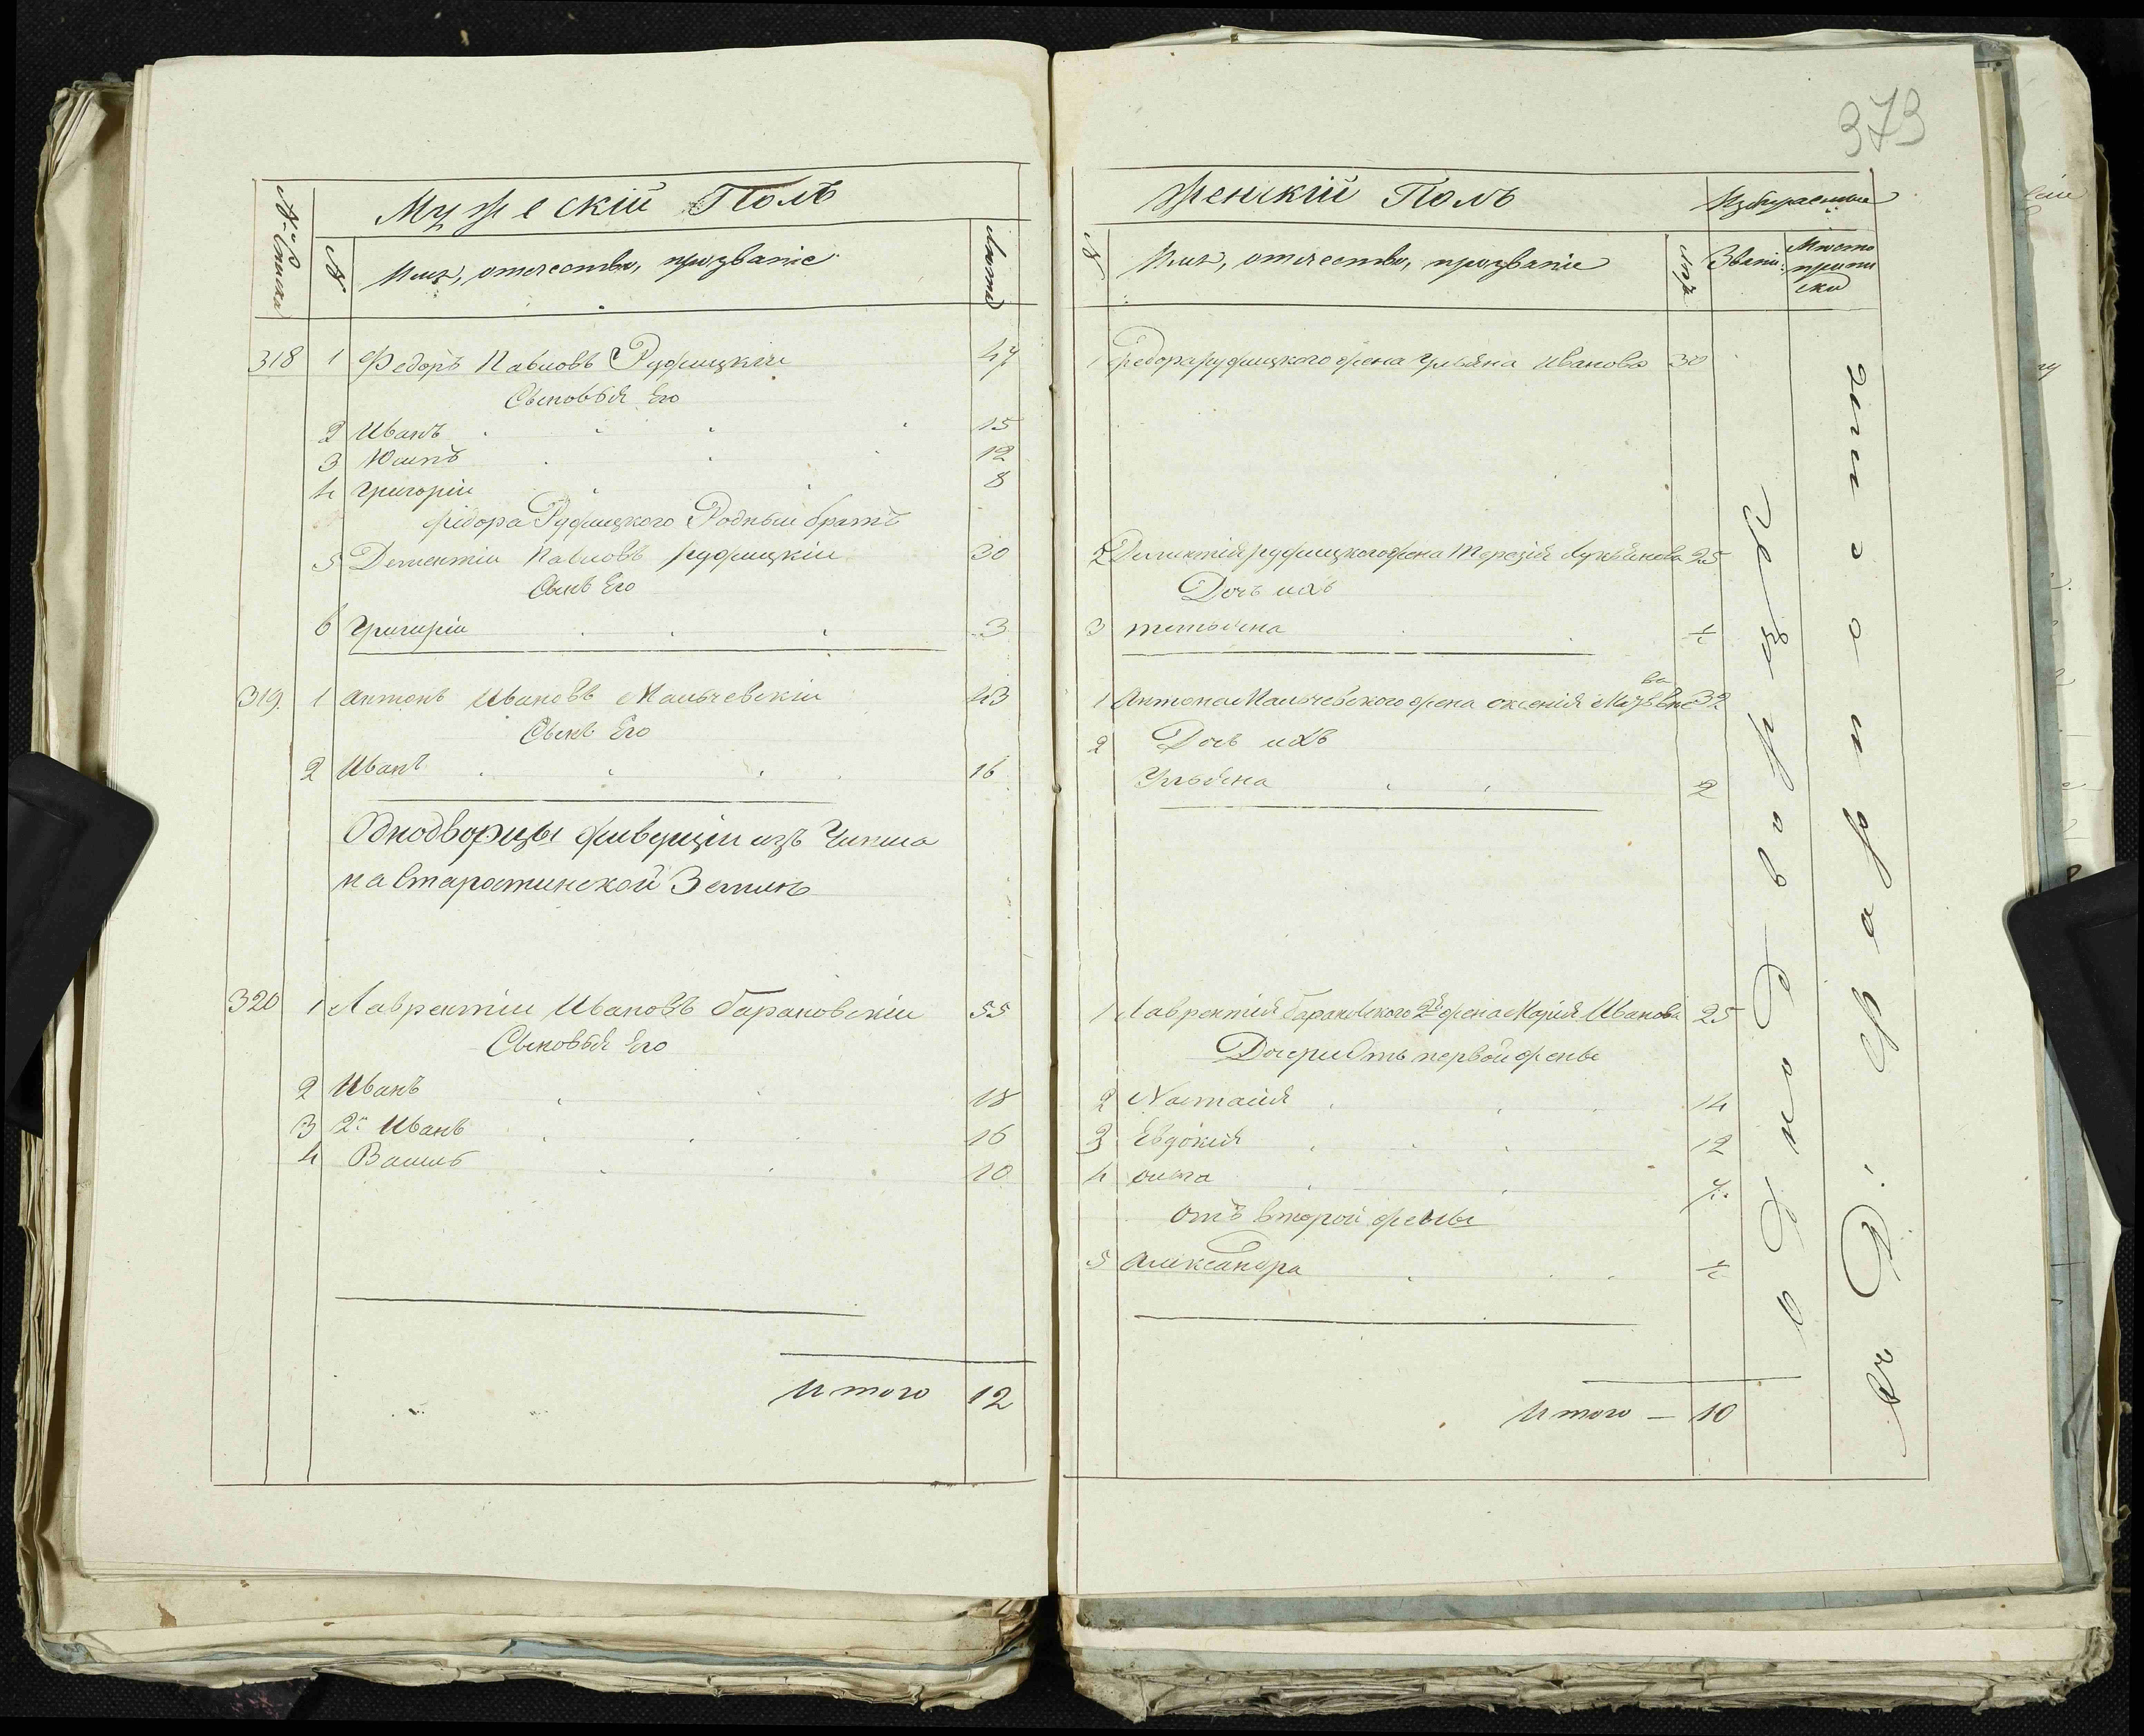 Мужескій Полъ
№ списка
№
Имя, отечество, прозваніе
Лета
318 1 Федоръ Павловъ Ружицкіи 47
Сыновья Его
2 Иванъ 15
3 Юзипъ 12
4 Григоріи 8
Федора Ружицкого Родныи братъ
5 Дементіи Павловъ Ружицкіи 30
Сынъ Его
6 Григоріи 3
319. 1 Антонъ Ивановъ Мальчевскіи 43
Сынъ Его
2 Иванъ 16
Однодворцы живущіи изъ Чинша
на Старостинской Земли
320 1 Лаврентіи Ивановъ Барановскіи 55
Сыновья Его
2 Иванъ 18
3 2й Иванъ 16
4 Василь 10
Итого 12
373
Женскій Полъ
Избираемые
№
Имя, отечество, прозваніе
Лета
Званіе
Место припи
ски
1 Федора Ружицкого жена Ульяна Иванова 30
2 Дементія Ружицкого жена Терезія Лукьянова 25
Дочь ихъ
3 Тетьяна ½
1 Антона Мальчевского жена Оксенія 32
ва
2 Дочь ихъ
Ульяна 2
1 Лаврентія Барановского 2я жена Марія Иванова 25
Дочери Отъ первой жены
2 Настасія 14
3 Евдокія 12
4 7
Отъ второй жены
5 Александра ½
Итого — 10
Однодворцы